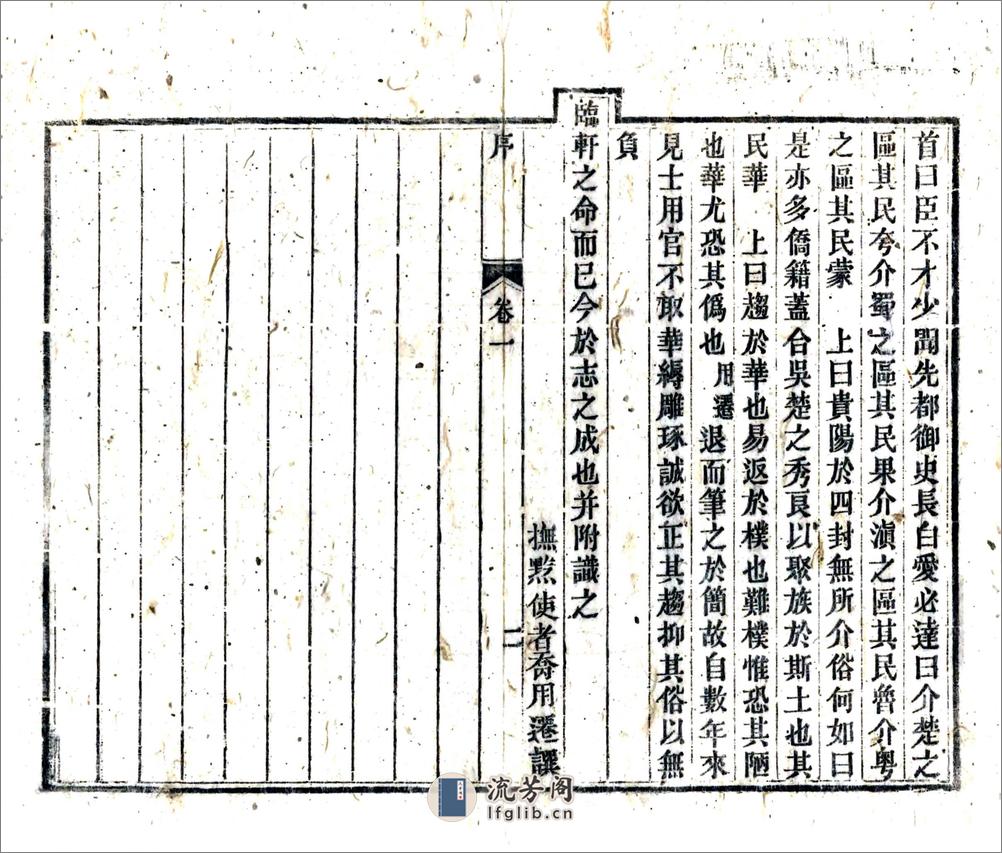 首曰臣不才少聞先都御史長白愛必達曰介楚之
區其民夸介蜀之區其民果介滇之區其民魯介粵
之區其民蒙　上曰貴陽於四封無所介俗何如曰
是亦多僑籍蓋合吳楚之秀良以聚族於斯土也其
民華　上曰趨於華也易返於樸也難樸惟恐其陋
也華尤恐其僞也用遷退而筆之於簡故自數年來
見士用官不取華縟雕琢誠欲正其趨抑其俗以無
負
臨軒之命而已今於志之成也并附識之
撫黔使者喬用遷譔
序　卷一　二
流芳阁
lfglib.cn